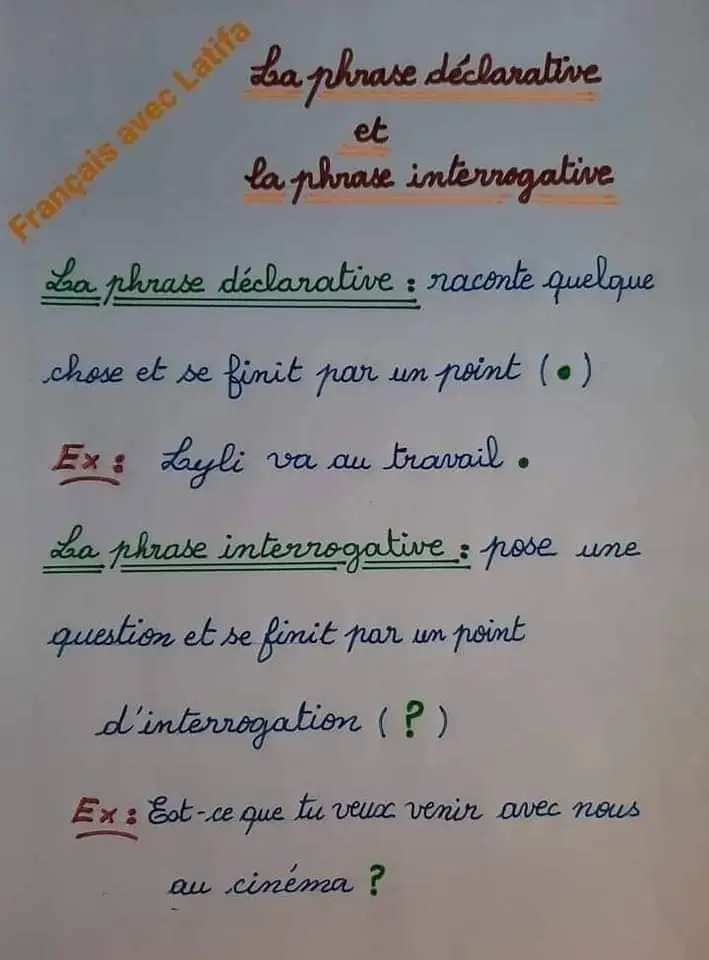 Français avec Latifa
La phrase déclarative
et
la phrase interrogative
La phrase déclarative : raconte quelque
chose et se finit par un point (•)
Ex : Lyli va au travail •
La phrase interrogative : pose une
question et se finit par un point
d'interrogation ( ? )
Ex : Est-ce que tu veux venir avec nous
au cinéma ?